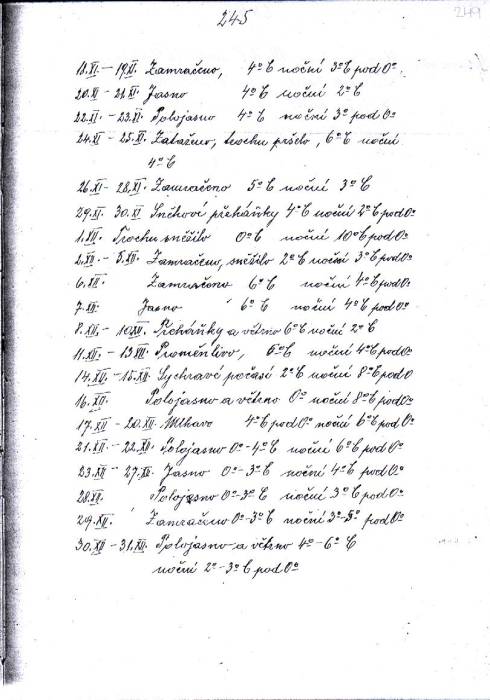 245
249
18.XI.-19.XI. Zamračeno, 4° C noční 3° C pod 0°.
20.XI - 21.XI Jasno 4° C noční 2° C
22.XI - 23.XI. Polojasno 4° C noční 3° pod 0°
24.XI - 25.XI. Zataženo, trochu pršelo, 6° C noční
4° C
26.XI - 28.XI. Zamračeno 5° C noční 3° C
29.XI. 30.XI Sněhové přeháňky 4° C noční 2° C pod 0°
1.XII. Trochu sněžilo 0° C noční 10° C pod 0°
2.XII - 5.XII. Zamračeno, sněžilo 2° C noční 3° C pod 0°
6.XII. Zamračeno 6° C noční 4° C pod 0°
7.XII. Jasno 6° C noční 4° C pod 0°
8.XII - 10.XII. Přeháňky a větrno 6° C noční 2° C
11.XII. - 13.XII. Proměnlivo, 5° C noční 4° C pod 0°
14.XII. - 15.XII. Sychravé počasí 2° C noční 8° C pod 0
16.XII. Polojasno a větrno 0° noční 8° C pod 0°
17.XII - 20.XII. Mlhavo 4° C pod 0° noční 6° C pod 0°
21.XII - 22.XII. Polojasno 0°-4° C noční 6° C pod 0°
23.XII - 27.XII. Jasno 0°-3° C noční 4° C pod 0°
28.XII. Polojasno 0°-3° C noční 3° C pod 0°
29.XII. Zamračeno 0°-3° C noční 3°-5° pod 0°
30.XII - 31.XII. Polojasno a větrno 4°-6° C
noční 2°-3° C pod 0°